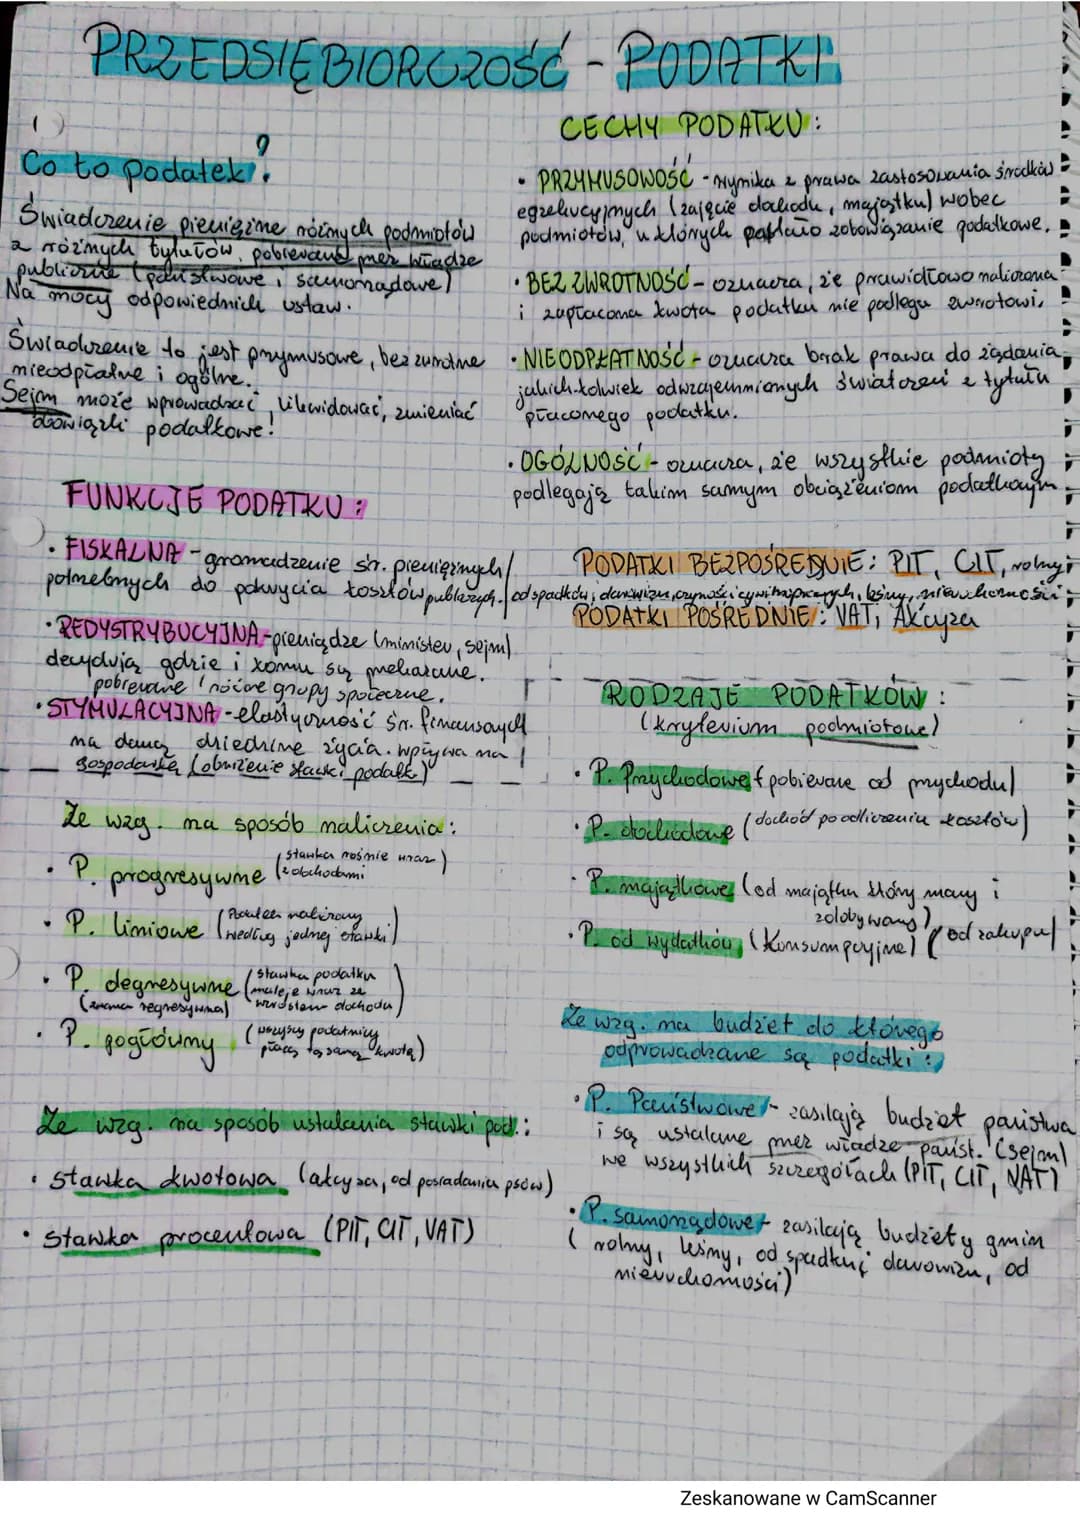 PRZEDSIĘBIORCZOŚĆ - PODATKI
Co to podatek?
Świadczenie pieniężne różnych podmiotów
z różnych tytułów, pobierane przez władze
publiczne (państwowe i samorządowe)
Na mocy odpowiednich ustaw.
Świadczenie to jest przymusowe, bezzwrotne
nieodpłatne i ogólne.
Sejm może wprowadzać, likwidować, zmieniać
obowiązki podatkowe!
FUNKCJE PODATKU:
• FISKALNA - gromadzenie śr. pieniężnych
potrzebnych do pokrycia kosztów publicznych.
• REDYSTRYBUCYJNA - pieniądze (minister, sejm)
decydują gdzie i komu są przekazane.
pobierane różne grupy społeczne.
• STYMULACYJNA - elastyczność śr. finansowych
na daną dziedzinę życia. wpływa na
gospodarkę (obniżenie stawki podatk.)
Ze wzg. na sposób naliczenia:
• P. progresywne (stawka rośnie wraz
z dochodami)
• P. liniowe (Podatek naliczony
według jednej stawki)
• P. degresywne (stawka podatku
maleje wraz ze
(zwana regresywna) wzrostem dochodu)
• P. pogłówny (wszyscy podatnicy
płacą tą samą kwotę)
Ze wzg. na sposób ustalania stawki pod.:
• stawka kwotowa (akcyza, od posiadania psów)
• stawka procentowa (PIT, CIT, VAT)
CECHY PODATKU:
• PRZYMUSOWOŚĆ - wynika z prawa zastosowania środków
egzekucyjnych (zajęcie dochodu, majątku) wobec
podmiotów, u których powstało zobowiązanie podatkowe.
• BEZZWROTNOŚĆ - oznacza, że prawidłowo naliczona
i zapłacona kwota podatku nie podlega zwrotowi.
• NIEODPŁATNOŚĆ - oznacza brak prawa do żądania
jakich kolwiek odwzajemnionych świadczeń z tytułu
płaconego podatku.
• OGÓLNOŚĆ - oznacza, że wszystkie podmioty
podlegają takim samym obciążeniom podatkowym.
PODATKI BEZPOŚREDNIE: PIT, CIT, rolny
od spadków i darowizn, czynności cywilnoprawnych, leśny, nieruchomości
PODATKI POŚREDNIE: VAT i Akcyza
RODZAJE PODATKÓW:
(kryterium podmiotowe)
• P. Przychodowe (pobierane od przychodu)
• P. dochodowe (dochód po odliczeniu kosztów)
• P. majątkowe (od majątku który mamy i
zdobywamy)
• P. od wydatków (Konsumpcyjne) (od zakupu)
Ze wzg. na budżet do którego
odprowadzane są podatki:
• P. Państwowe - zasilają budżet państwa
i są ustalane przez władze państ. (sejm)
we wszystkich szczegółach (PIT, CIT, VAT)
• P. samorządowe - zasilają budżety gmin
(rolny, leśny, od spadku i darowizn, od
nieruchomości)
Zeskanowane w CamScanner